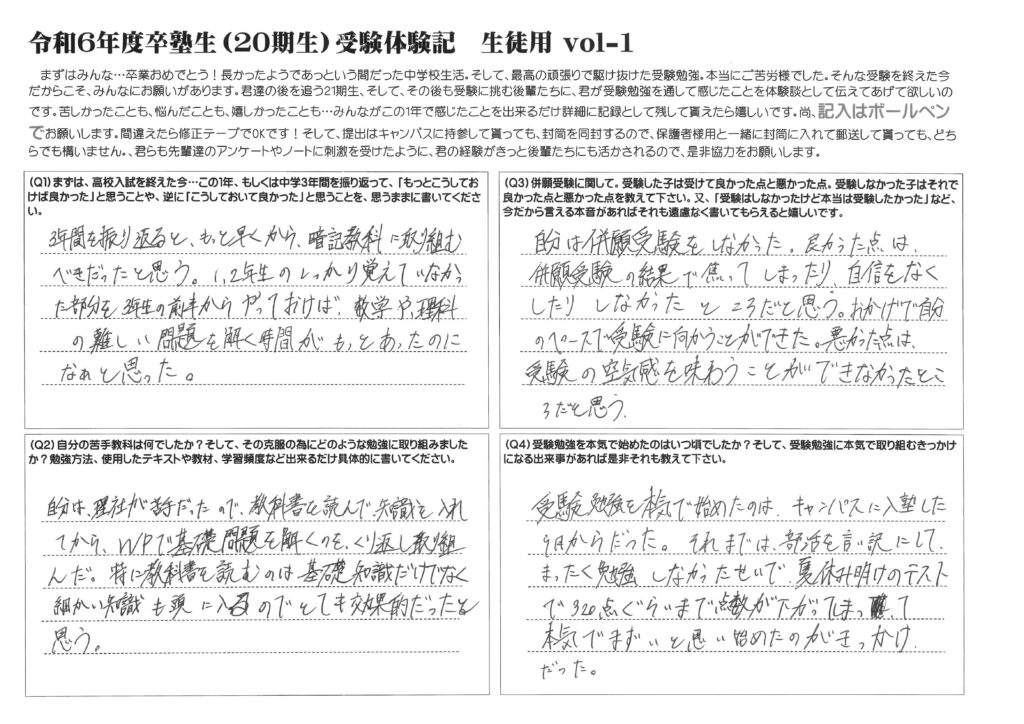 令和6年度卒塾生(20期生)受験体験記 生徒用 vol-1
まずはみんな…卒業おめでとう!長かったようであっという間だった中学校生活。そして、最高の頑張りで駆け抜けた受験勉強。本当にご苦労様でした。そんな受験を終えた今
だからこそ、みんなにお願いがあります。君達の後を追う21期生、そして、その後も受験に挑む後輩たちに、君が受験勉強を通して感じたことを体験談として伝えてあげて欲しいの
です。苦しかったことも、悩んだことも、嬉しかったことも…みんながこの1年で感じたことを出来るだけ詳細に記録として残して貰えたら嬉しいです。尚、記入はボールペン
でお願いします。間違えたら修正テープでOKです!そして、提出はキャンパスに持参して貰っても、封筒を同封するので、保護者様用と一緒に封筒に入れて郵送して貰っても、どち
らでも構いません。、君らも先輩達のアンケートやノートに刺激を受けたように、君の経験がきっと後輩たちにも活かされるので、是非協力をお願いします。
(Q1)まずは、高校入試を終えた今…この1年、もしくは中学3年間を振り返って、「もっとこうしてお
けば良かった」と思うことや、逆に「こうしておいて良かった」と思うことを、思うままに書いてくださ
い。
3年間を振り返ると、もっと早くから、暗記教科に取り組む
べきだったと思う。1,2年生のしっかり覚えていなかっ
た部分を3年生の前半からやっておけば、数学や理科
の難しい問題を解く時間がもっとあったのに
なぁと思った。
(Q2)自分の苦手教科は何でしたか?そして、その克服の為にどのような勉強に取り組みました
か?勉強方法、使用したテキストや教材、学習頻度など出来るだけ具体的に書いてください。
自分は、理社が苦手だったので、教科書を読んで、知識を入れ
てから、WPで基礎問題を解くのを、くり返し取り組
んだ。特に教科書を読むのは基礎知識だけでなく
細かい知識も頭に入るのでとても効果的だったと
思う。
(Q3)併願受験に関して。受験した子は受けて良かった点と悪かった点。受験しなかった子はそれで
良かった点と悪かった点を教えて下さい。又、「受験はしなかったけど本当は受験したかった」など、
今だから言える本音があればそれも遠慮なく書いてもらえると嬉しいです。
自分は併願受験をしなかった。良かった点は、
併願受験の結果で焦ってしまったり、自信をなく
したりしなかったところだと思う。おかげで自分
のペースで受験に向かうことができた。悪かった点は、
受験の空気感を味わうことができなかったとこ
ろだと思う。
(Q4)受験勉強を本気で始めたのはいつ頃でしたか?そして、受験勉強に本気で取り組むきっかけ
になる出来事があれば是非それも教えて下さい。
受験勉強を本気で始めたのは、キャンパスに入塾した
9月からだった。それまでは、部活を言い訳にして、
まったく勉強しなかったせいで、夏休み明けのテスト
で320点ぐらいまで点数が下がってしまって
本気でまずいと思い始めたのがきっかけ
だった。